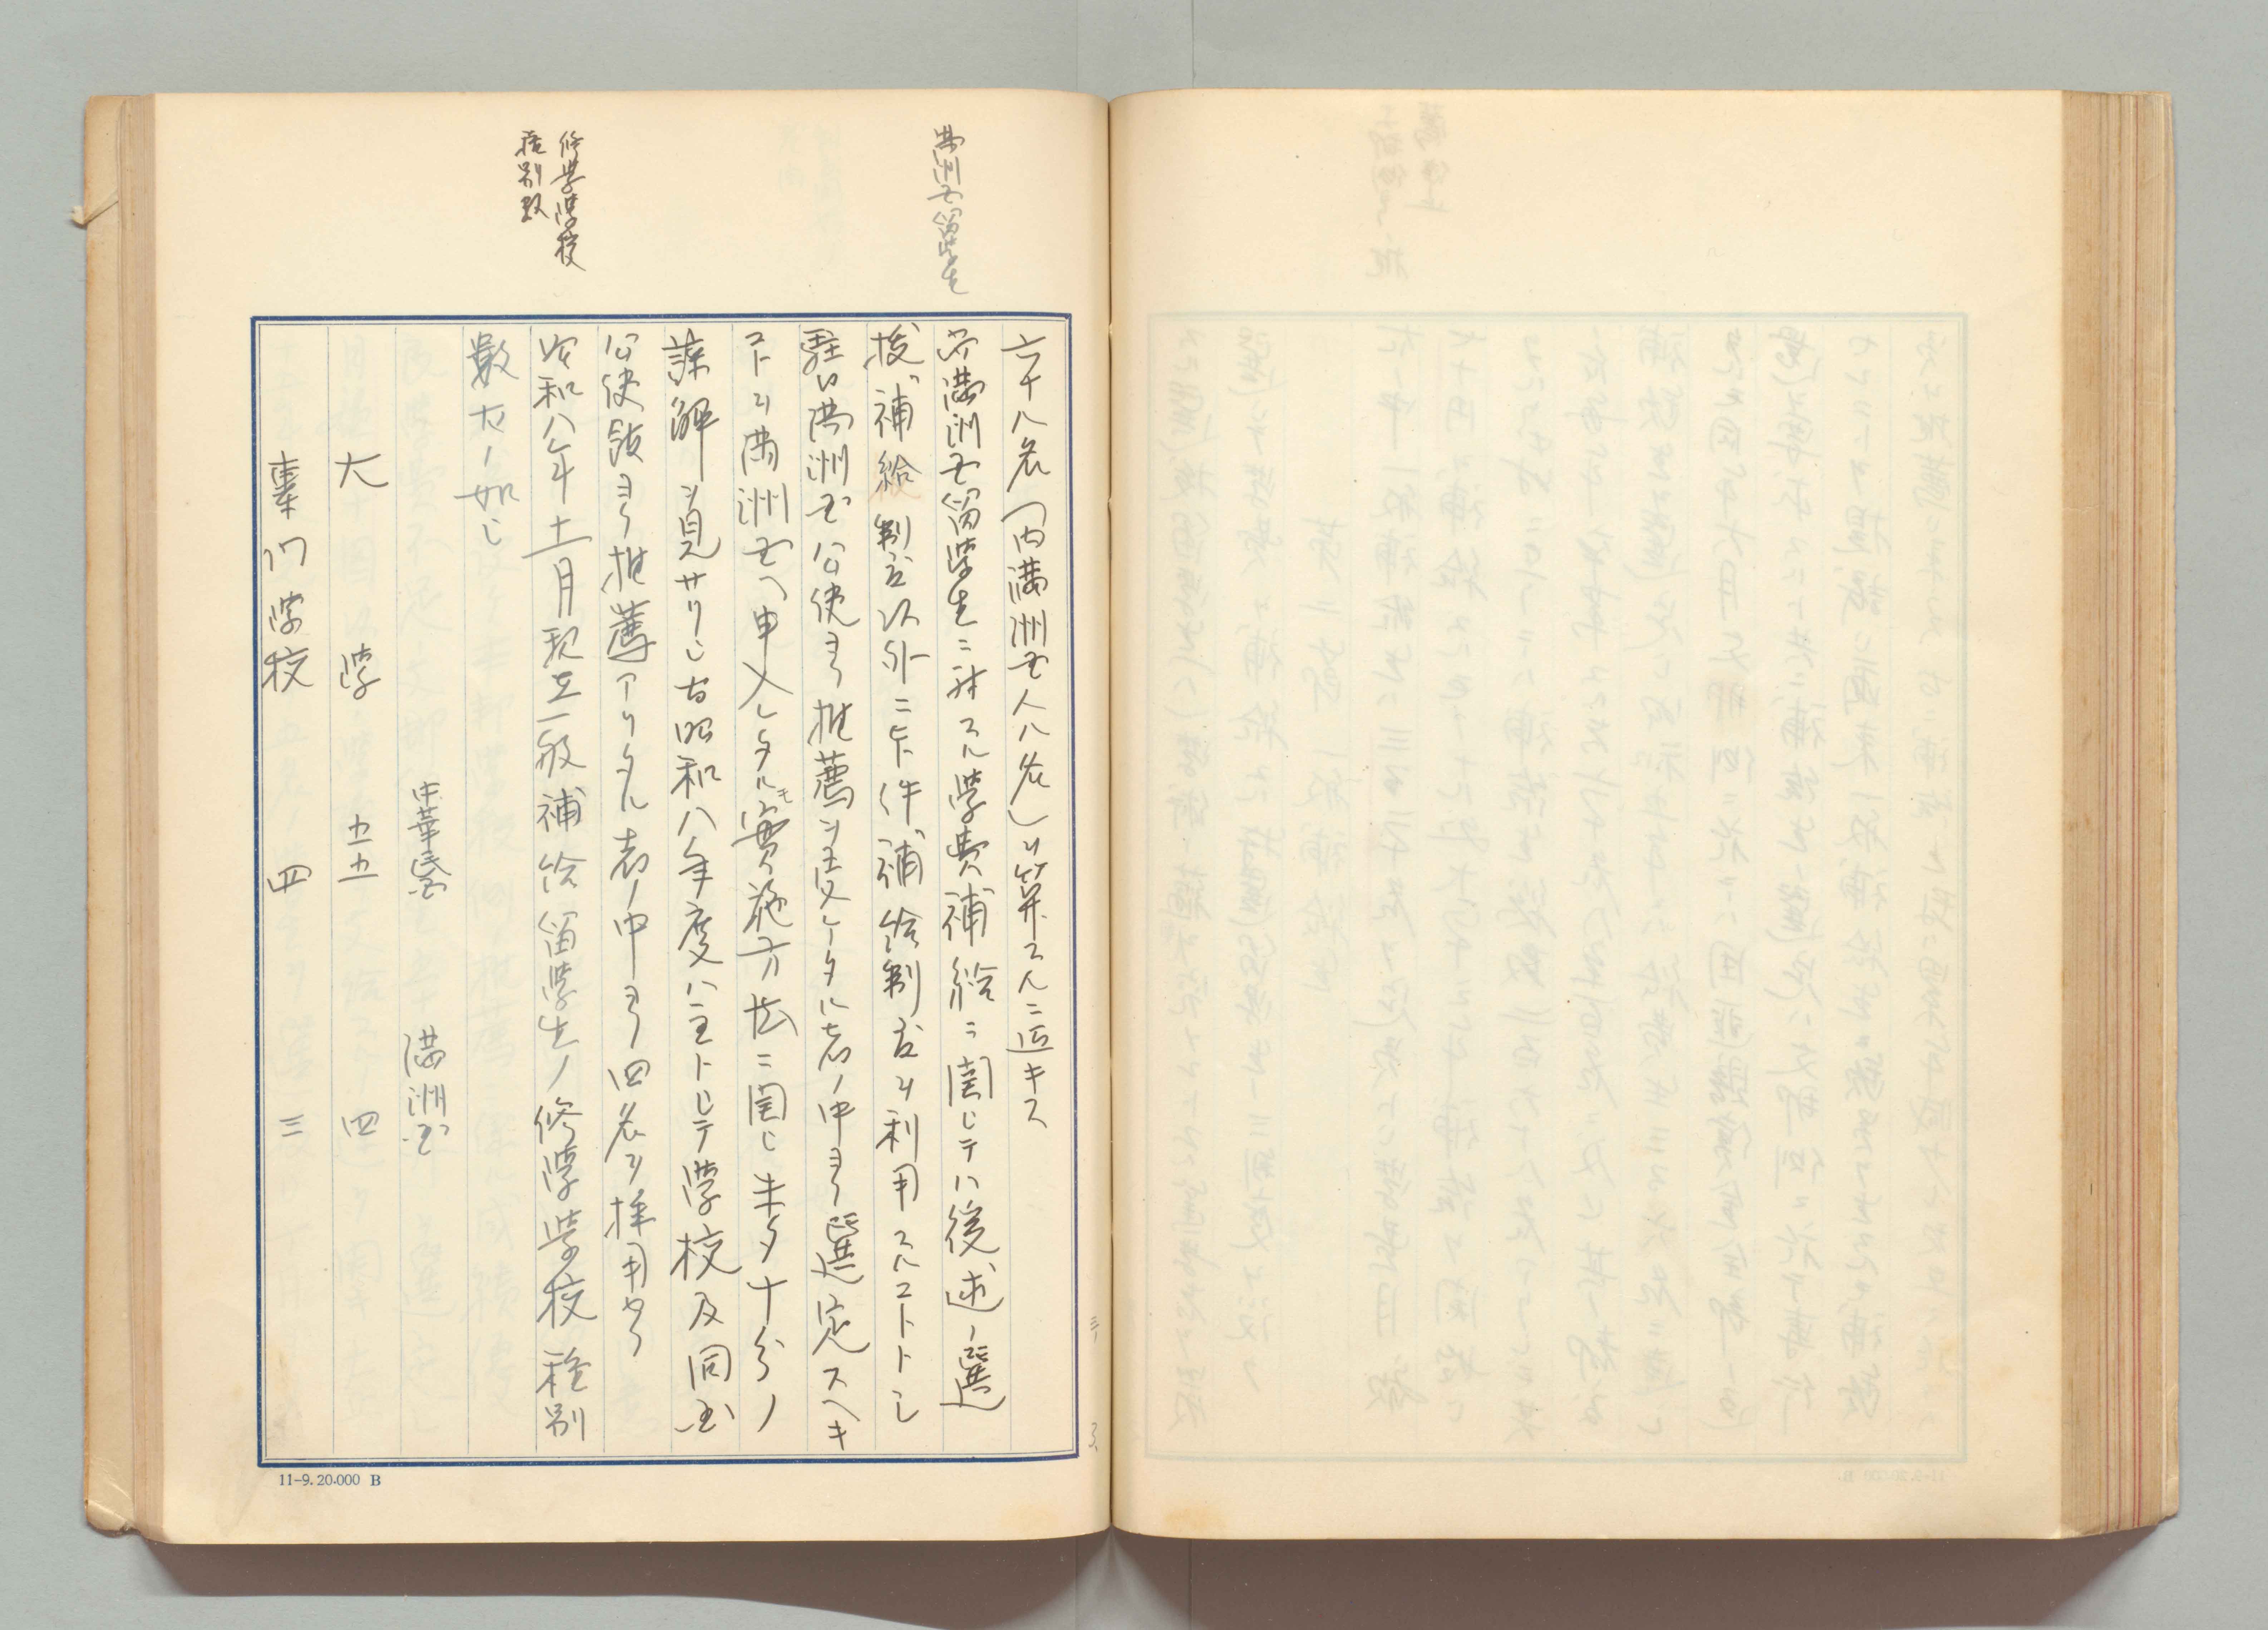 満洲国留学生
六十八名(内満洲国人八名)ヲ算スルニ過キス
尚満洲国留学生ニ対スル学費補給ニ関シテハ後述ノ選
抜補給制度以外ニ本件補給制度ヲ利用スルコトトシ
駐日満洲国公使ヨリ推薦ヲ受ケタル者ノ中ヨリ選定スヘキ
コトヲ満洲国ヘ申入レタルモ実施方法ニ関シ未タ十分ノ
諒解ヲ見サリシ為昭和八年度ハ主トシテ学校及同国
公使館ヨリ推薦アリタル者ノ中ヨリ四名ヲ採用セリ
修学学校
種別数
昭和八年十二月現在一般補給留学生ノ修学学校種別
数左ノ如シ
中華民国 満洲国
大学 五五 四
専門学校 四 三
11-9. 20.000 B